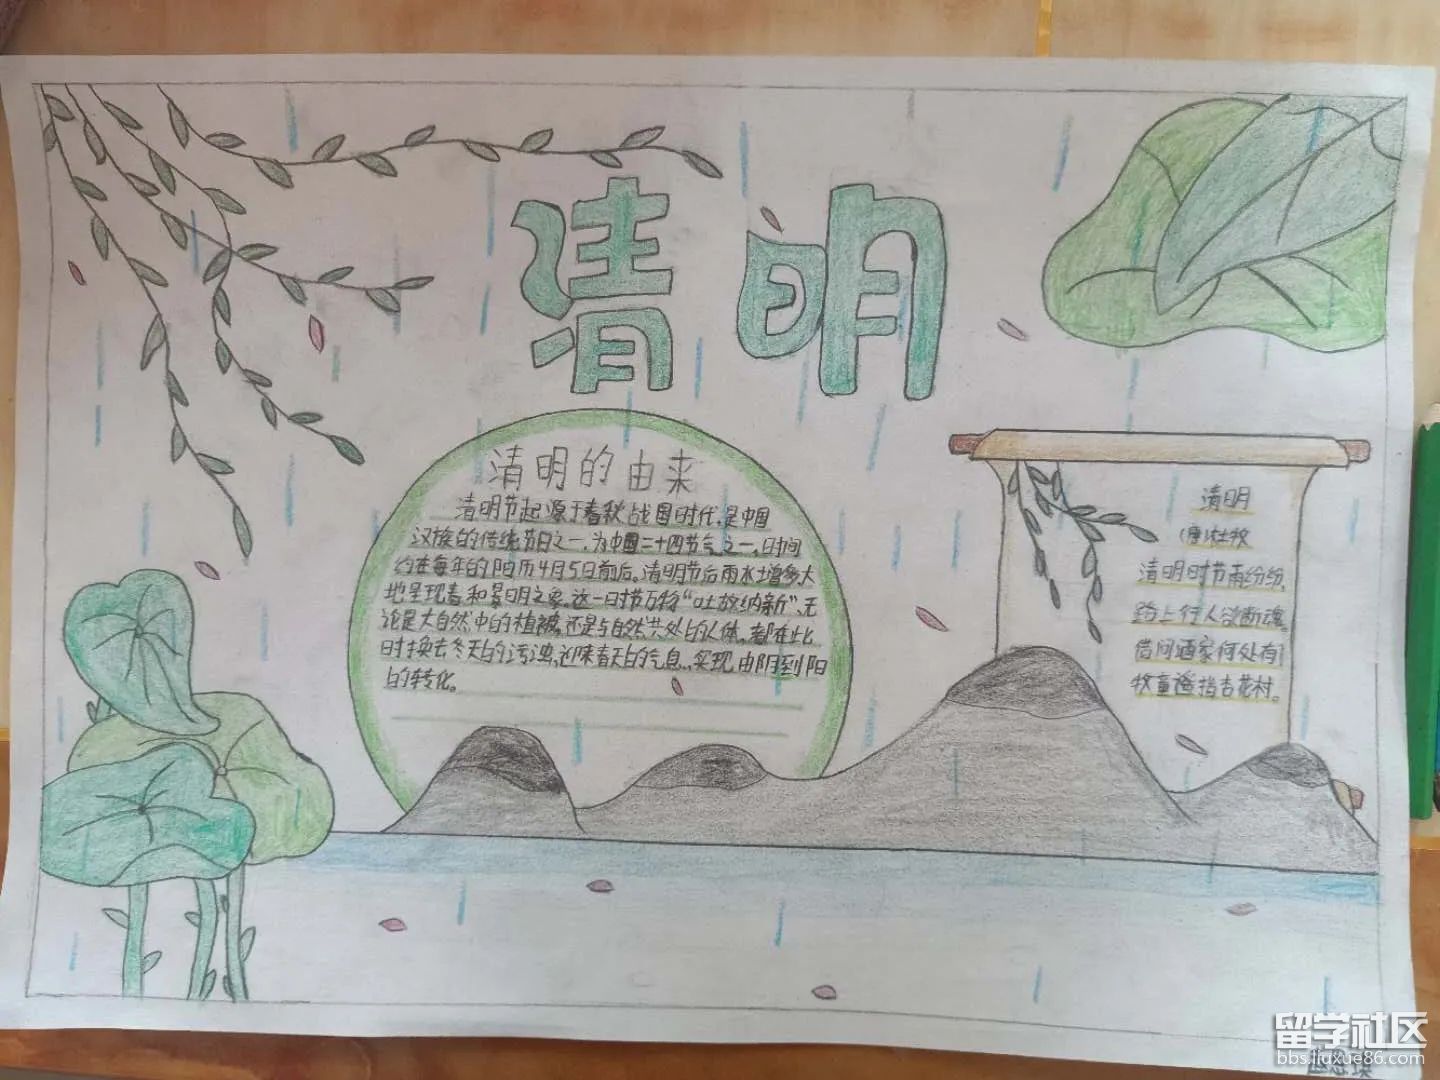 清明
清明的由来
清明节起源于春秋战国时代,是中国
汉族的传统节日之一,为中国二十四节气之一,时间
约在每年的阳历4月5日前后。清明节后雨水增多大
地呈现春和景明之象。这一时节万物“吐故纳新”、无
论是大自然中的植被,还是与自然共处的人体,都在此
时换去冬天的污浊,迎来春天的气息,实现由阴到阳
的转化。
清明
(唐)杜牧
清明时节雨纷纷,
路上行人欲断魂。
借问酒家何处有
牧童遥指杏花村。
留学社区
bbs.liuxue86.com